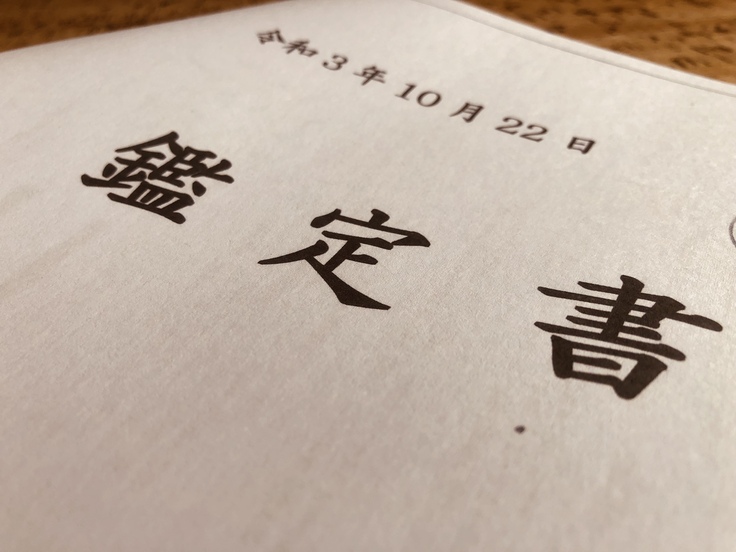 令和3年10月22日
鑑定書